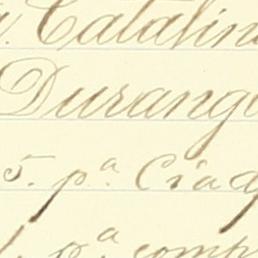 Catalin
Durang
5. p.ª Ciad
p.ª comp